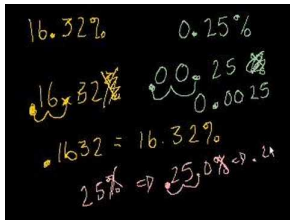 16.32% 0.25%
.16.32% .00.25%
0.0025
.1632 = 16.32%
25% ⇒ .25.0% ⇒ .2